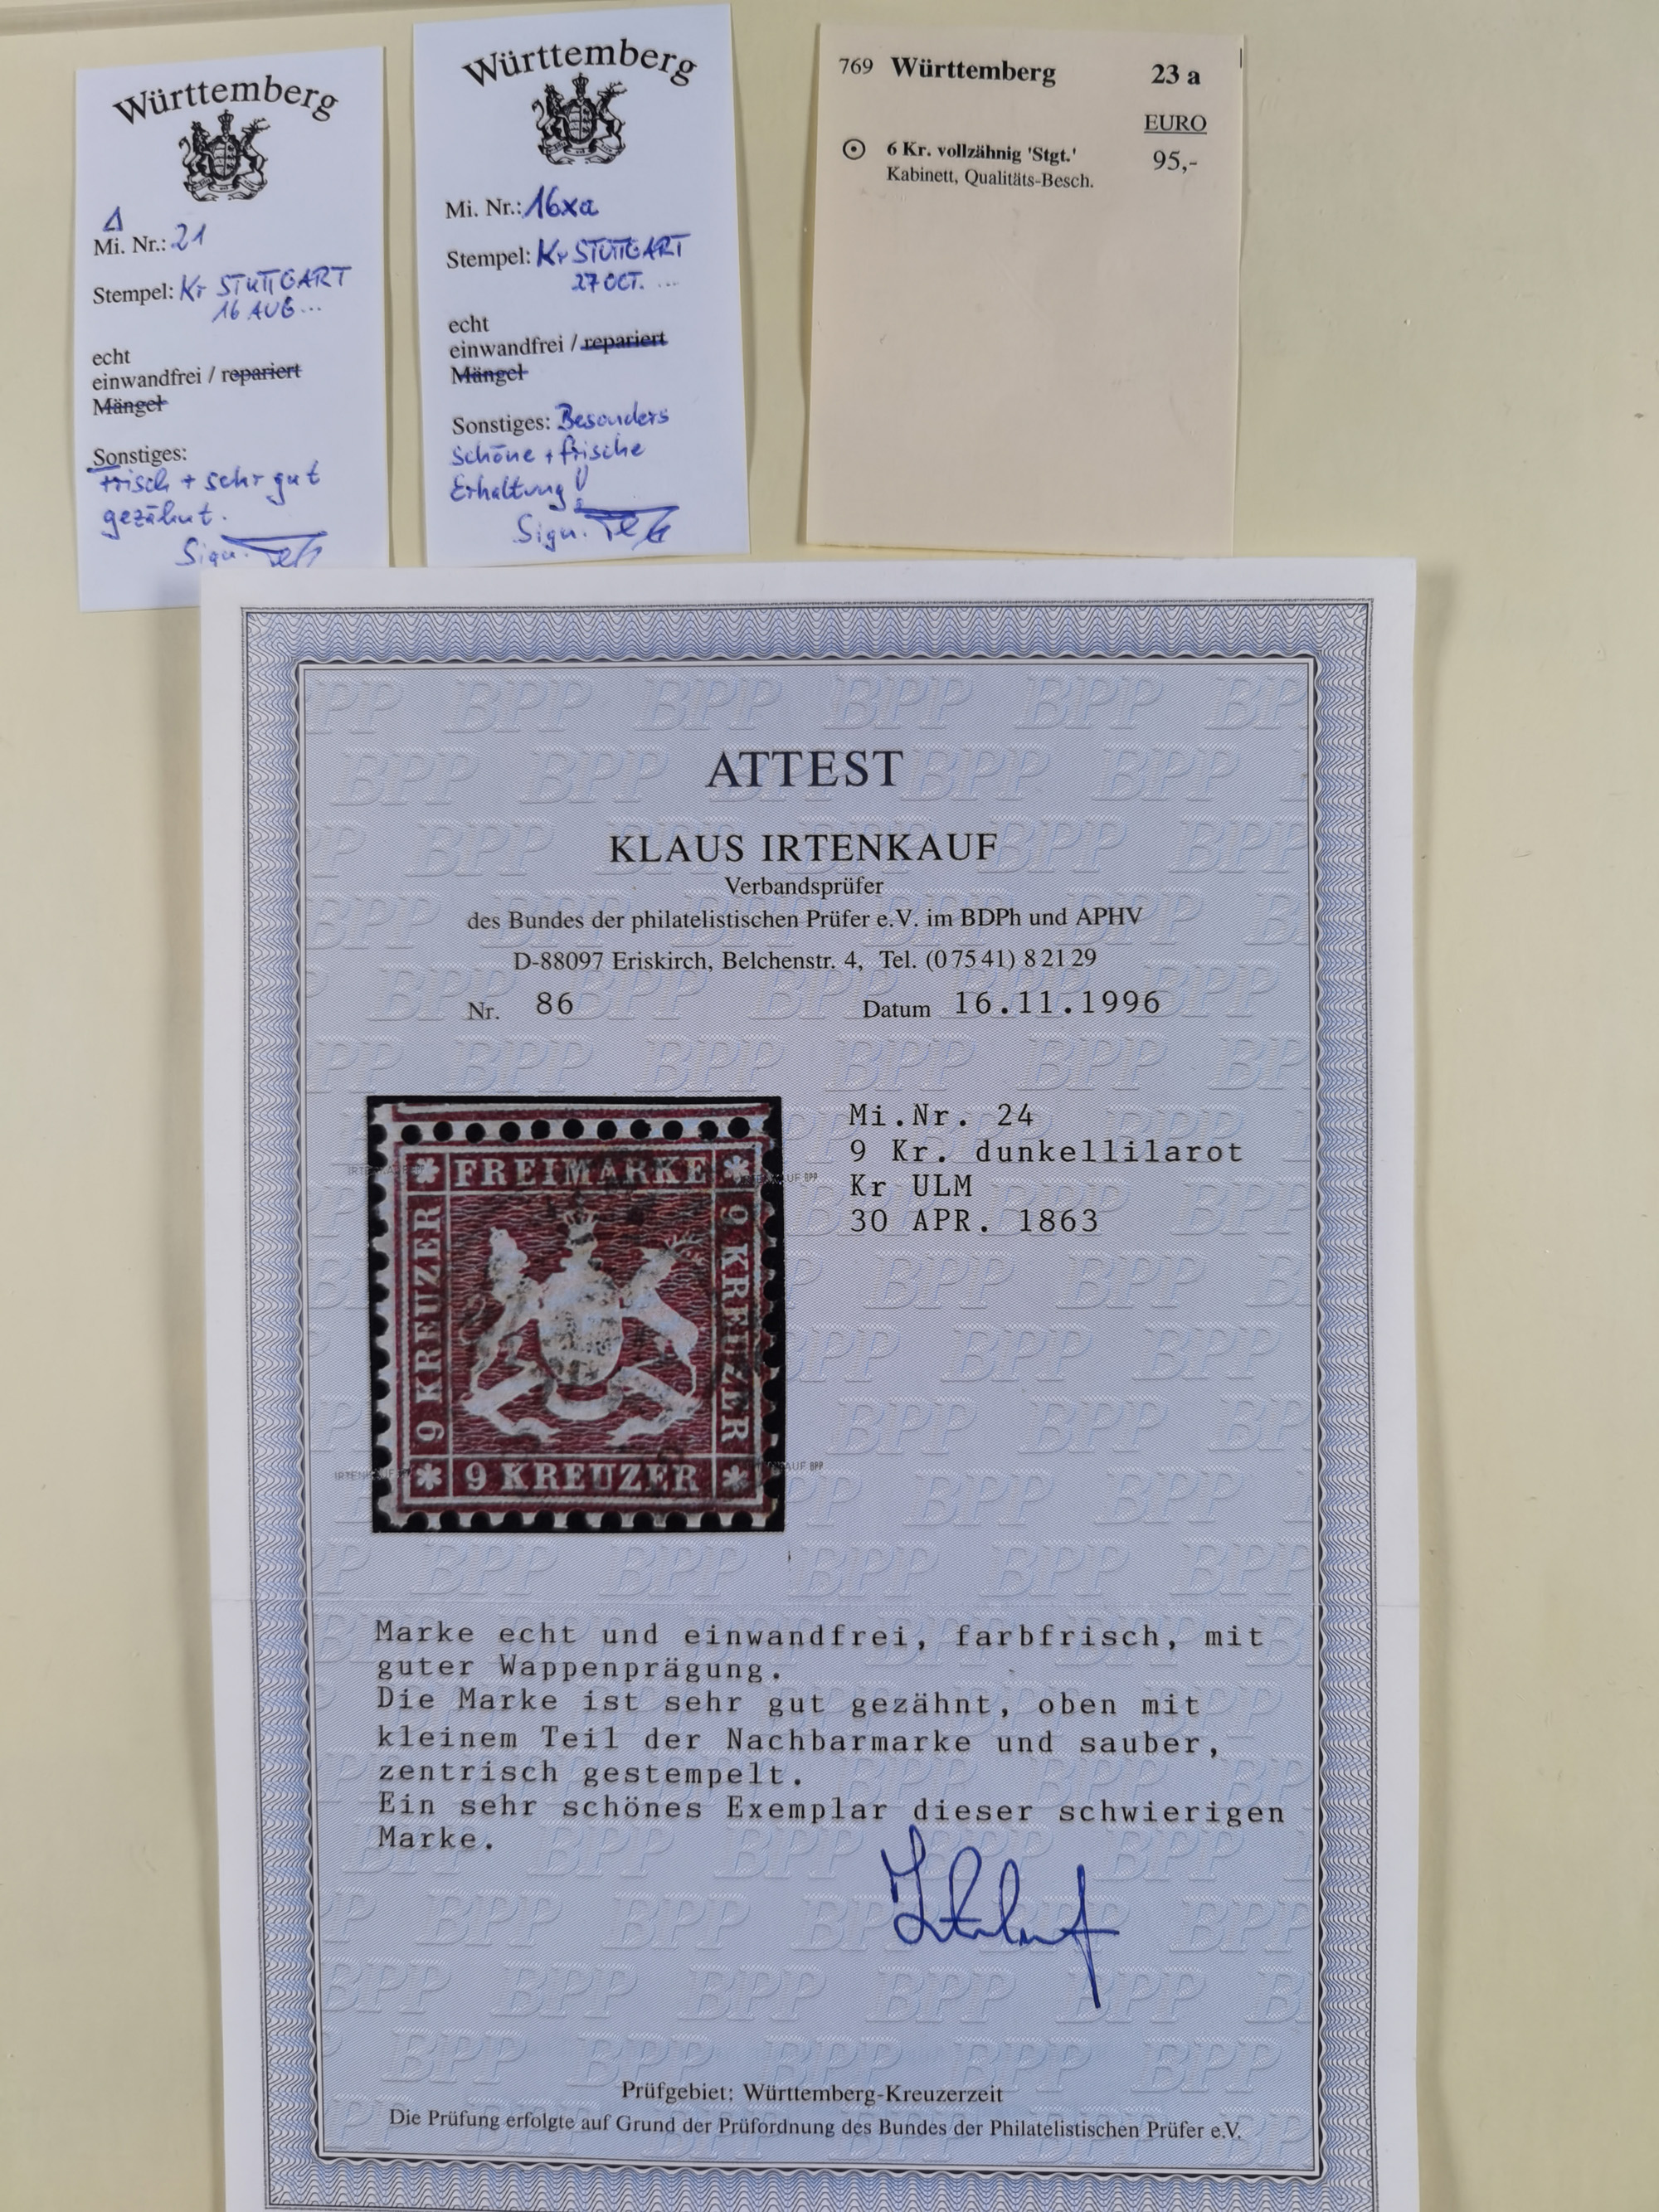 Württemberg
Δ
Mi. Nr.: 21
Stempel: Kr STUTTGART
16 AUG...
echt
einwandfrei / repariert
Mängel
Sonstiges:
frisch + sehr gut
gezähnt.
Sign.
Württemberg
Mi. Nr.: 16xa
Stempel: Kr STUTTGART
27 OCT. ...
echt
einwandfrei / repariert
Mängel
Sonstiges: Besonders
schöne + frische
Erhaltung!
Sign.
769 Württemberg 23 a
EURO
6 Kr. vollzähnig 'Stgt.' 95,-
Kabinett, Qualitäts-Besch.
ATTEST
KLAUS IRTENKAUF
Verbandsprüfer
des Bundes der philatelistischen Prüfer e.V. im BDPh und APHV
D-88097 Eriskirch, Belchenstr. 4, Tel. (0 75 41) 8 21 29
Nr. 86 Datum 16.11.1996
FREIMARKE
9 KREUZER
9 KREUZER
9 KREUZER
Mi.Nr. 24
9 Kr. dunkellilarot
Kr ULM
30 APR. 1863
Marke echt und einwandfrei, farbfrisch, mit
guter Wappenprägung.
Die Marke ist sehr gut gezähnt, oben mit
kleinem Teil der Nachbarmarke und sauber,
zentrisch gestempelt.
Ein sehr schönes Exemplar dieser schwierigen
Marke.
Prüfgebiet: Württemberg-Kreuzerzeit
Die Prüfung erfolgte auf Grund der Prüfordnung des Bundes der Philatelistischen Prüfer e.V.